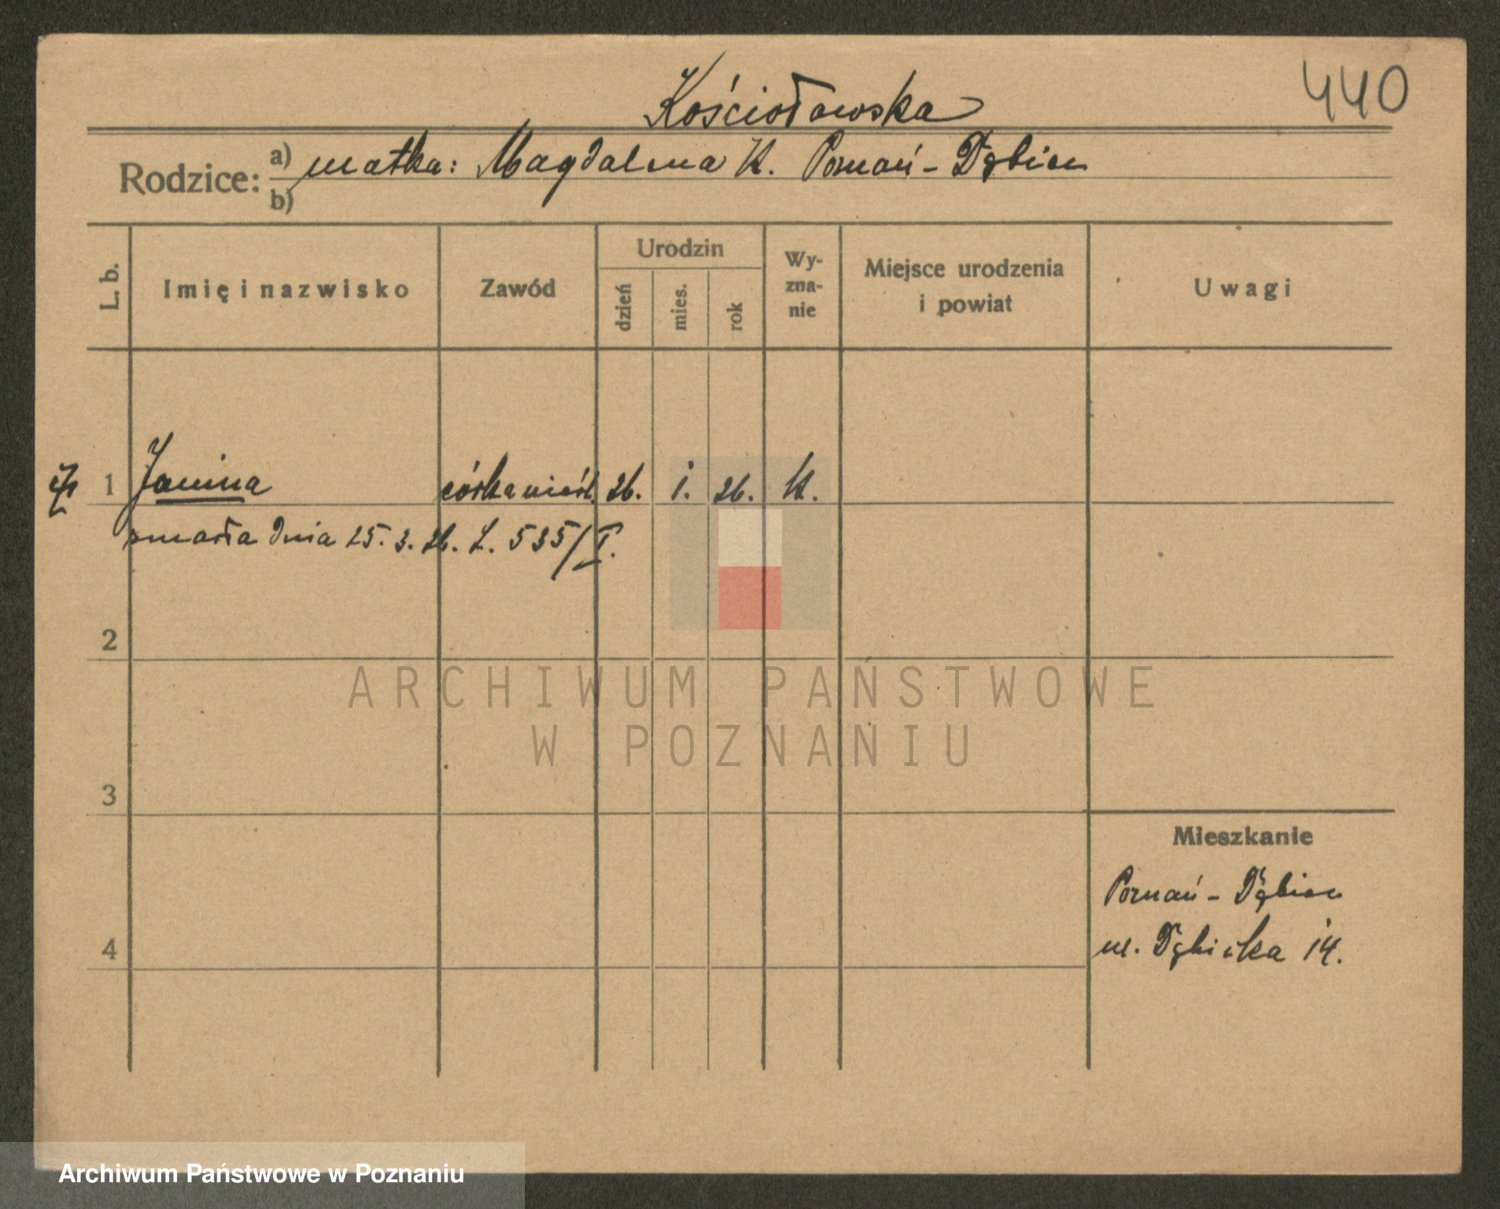 440
Kościołowska
Rodzice: a) matka: Magdalena K. Poznań - Dębiec
b)
L. b. Imię i nazwisko Zawód Urodzin dzień mies. rok Wy-zna-nie Miejsce urodzenia i powiat Uwagi
1 Janina córka nieśl. 26. 1. 26. K.
zmarła dnia 25. 3. 26. L. 535/I.
2
ARCHIWUM PAŃSTWOWE
W POZNANIU
3
Mieszkanie
Poznań - Dębiec
4
ul. Dębicka 14.
Archiwum Państwowe w Poznaniu